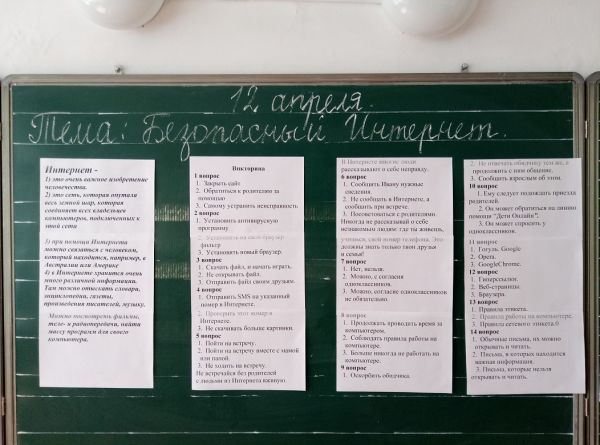 12 апреля.
Тема: Безопасный Интернет.
Интернет -
1) это очень важное изобретение
человечества.
2) это сеть, которая опутала
весь земной шар, которая
соединяет всех владельцев
компьютеров, подключенных к
этой сети
3) при помощи Интернета
можно связаться с человеком,
который находится, например, в
Австралии или Америке
4) в Интернете хранится очень
много различной информации.
Там можно отыскать словари,
энциклопедии, газеты,
произведения писателей, музыку.
Можно посмотреть фильмы,
теле- и радиопередачи, найти
массу программ для своего
компьютера.
Викторина
1 вопрос
1. Закрыть сайт
2. Обратиться к родителям за
помощью
3. Самому устранить неисправность
2 вопрос
1. Установить антивирусную
программу
2. Установить на свой браузер
фильтр
3. Установить новый браузер.
3 вопрос
1. Скачать файл, и начать играть.
2. Не открывать файл.
3. Отправить файл своим друзьям.
4 вопрос
1. Отправить SMS на указанный
номер в Интернете.
2. Проверить этот номер в
Интернете.
3. Не скачивать больше картинки.
5 вопрос
1. Пойти на встречу.
2. Пойти на встречу вместе с мамой
или папой.
3. Не ходить на встречу.
Не встречайся без родителей
с людьми из Интернета вживую.
В Интернете многие люди
рассказывают о себе неправду.
6 вопрос
1. Сообщить Ивану нужные
сведения.
2. Не сообщить в Интернете, а
сообщить при встрече.
3. Посоветоваться с родителями.
Никогда не рассказывай о себе
незнакомым людям: где ты живешь,
учишься, свой номер телефона. Это
должны знать только твои друзья
и семья!
7 вопрос
1. Нет, нельзя.
2. Можно, с согласия
одноклассников.
3. Можно, согласие одноклассников
не обязательно.
8 вопрос
1. Продолжать проводить время за
компьютером.
2. Соблюдать правила работы на
компьютере.
3. Больше никогда не работать на
компьютере.
9 вопрос
1. Оскорбить обидчика.
2. Не отвечать обидчику тем же, а
продолжить с ним общение.
3. Сообщить взрослым об этом.
10 вопрос
1. Ему следует подождать приезда
родителей.
2. Он может обратиться на линию
помощи "Дети Онлайн".
3. Он может спросить у
одноклассников.
11 вопрос
1. Гогуль. Google
2. Opera.
3. GoogleChrome.
12 вопрос
1. Гиперссылки.
2. Веб-страницы.
3. Браузеры.
13 вопрос
1. Правила этикета.
2. Правила работы на компьютере.
3. Правила сетевого этикета.
14 вопрос
1. Обычные письма, их можно
открывать и читать.
2. Письма, в которых находится
важная информация.
3. Письма, которые нельзя
открывать и читать.